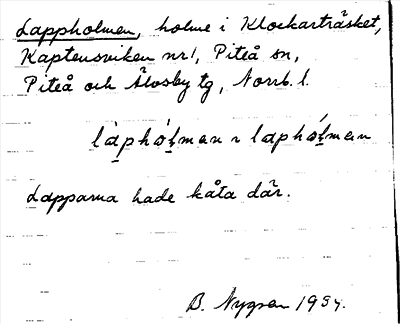 Lappholmen, holme i Klockarträsket,
Kaptensviken nr 1, Piteå sn,
Piteå och Älvsby tg, Norrb. l.
làphó̀lman ~ laphó̀lman
Lapparna hade kåta där.
B. Nygren 1934.